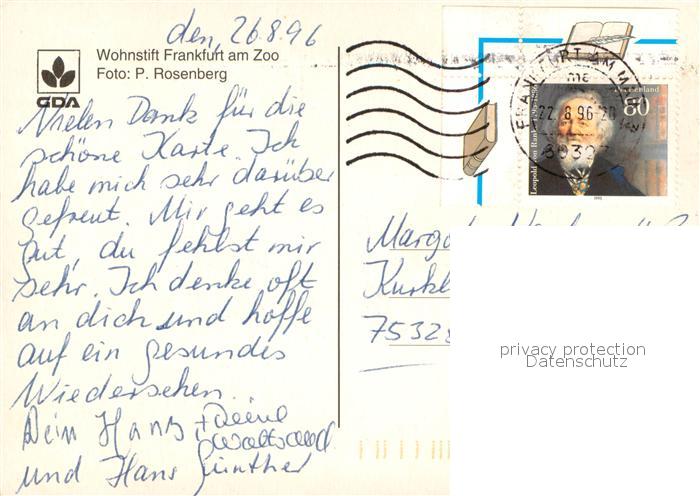 den, 26.8.96
Wohnstift Frankfurt am Zoo
Foto: P. Rosenberg
GDA
Vielen Dank für die
schöne Karte. Ich
habe mich sehr darüber
gefreut. Mir geht es
gut, du fehlst mir
sehr. Ich denke oft
an dich und hoffe
auf ein gesundes
Wiedersehen.
Dein Hans + Deine
Waltraud
und Hans Günther
FRANKFURT AM M
8.96-20
Deutschland
80
Leopold von Ranke 1795-1886
1995
75328
privacy protection
Datenschutz